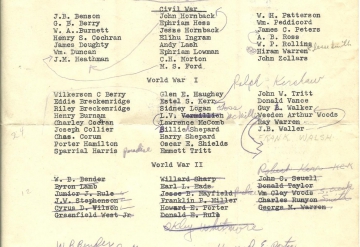 Civil War
J.B. Benson John Hornback W.H. Patterson
G.B. Berry Ephriam Hess Wm. Peddicord
W.A. Burnett Jesse Hornback James C. Peters
Henry S. Cochran Elihu Ingram A.B. Ross
James Doughty Andy Lash W.P. Rolling
Wm. Duncan Ephriam Lowman Hiram Warren
J.M. Heathman C.H. Morton John Zollars
M.S. Ford
World War I
Ralph Kerschaw
Wilkerson C Berry Glen E. Haughey John W. Tritt
Eddie Breckenridge Estel S. Donald Vance
Riley Breckenridge Sidney Logan Guy R. Walker
Henry Burnam L.V. Weeden Arthur Woods
Charley Cochran Lawrence McComb Ray Warren
Joseph Collier Billie Shepard J.B. Waller
Chas. Corum Harry Shepard
Porter Hamilton Oscar E. Shields
Sparrial Harris Emmet Tritt
World War II
W.B. Bender Willard Sharp John G. Sewell
Byron Lamb Earl L. Eads Donald Taylor
Junior J. Rule Jesse B. Mayfield Wm Clay Woods
J.W. Stephenson Franklin P. Miller Charles Runyon
Cyrus D. Wilson Howard E. Porter George M. Warren
Greenfield West Jr Donald H. Rule